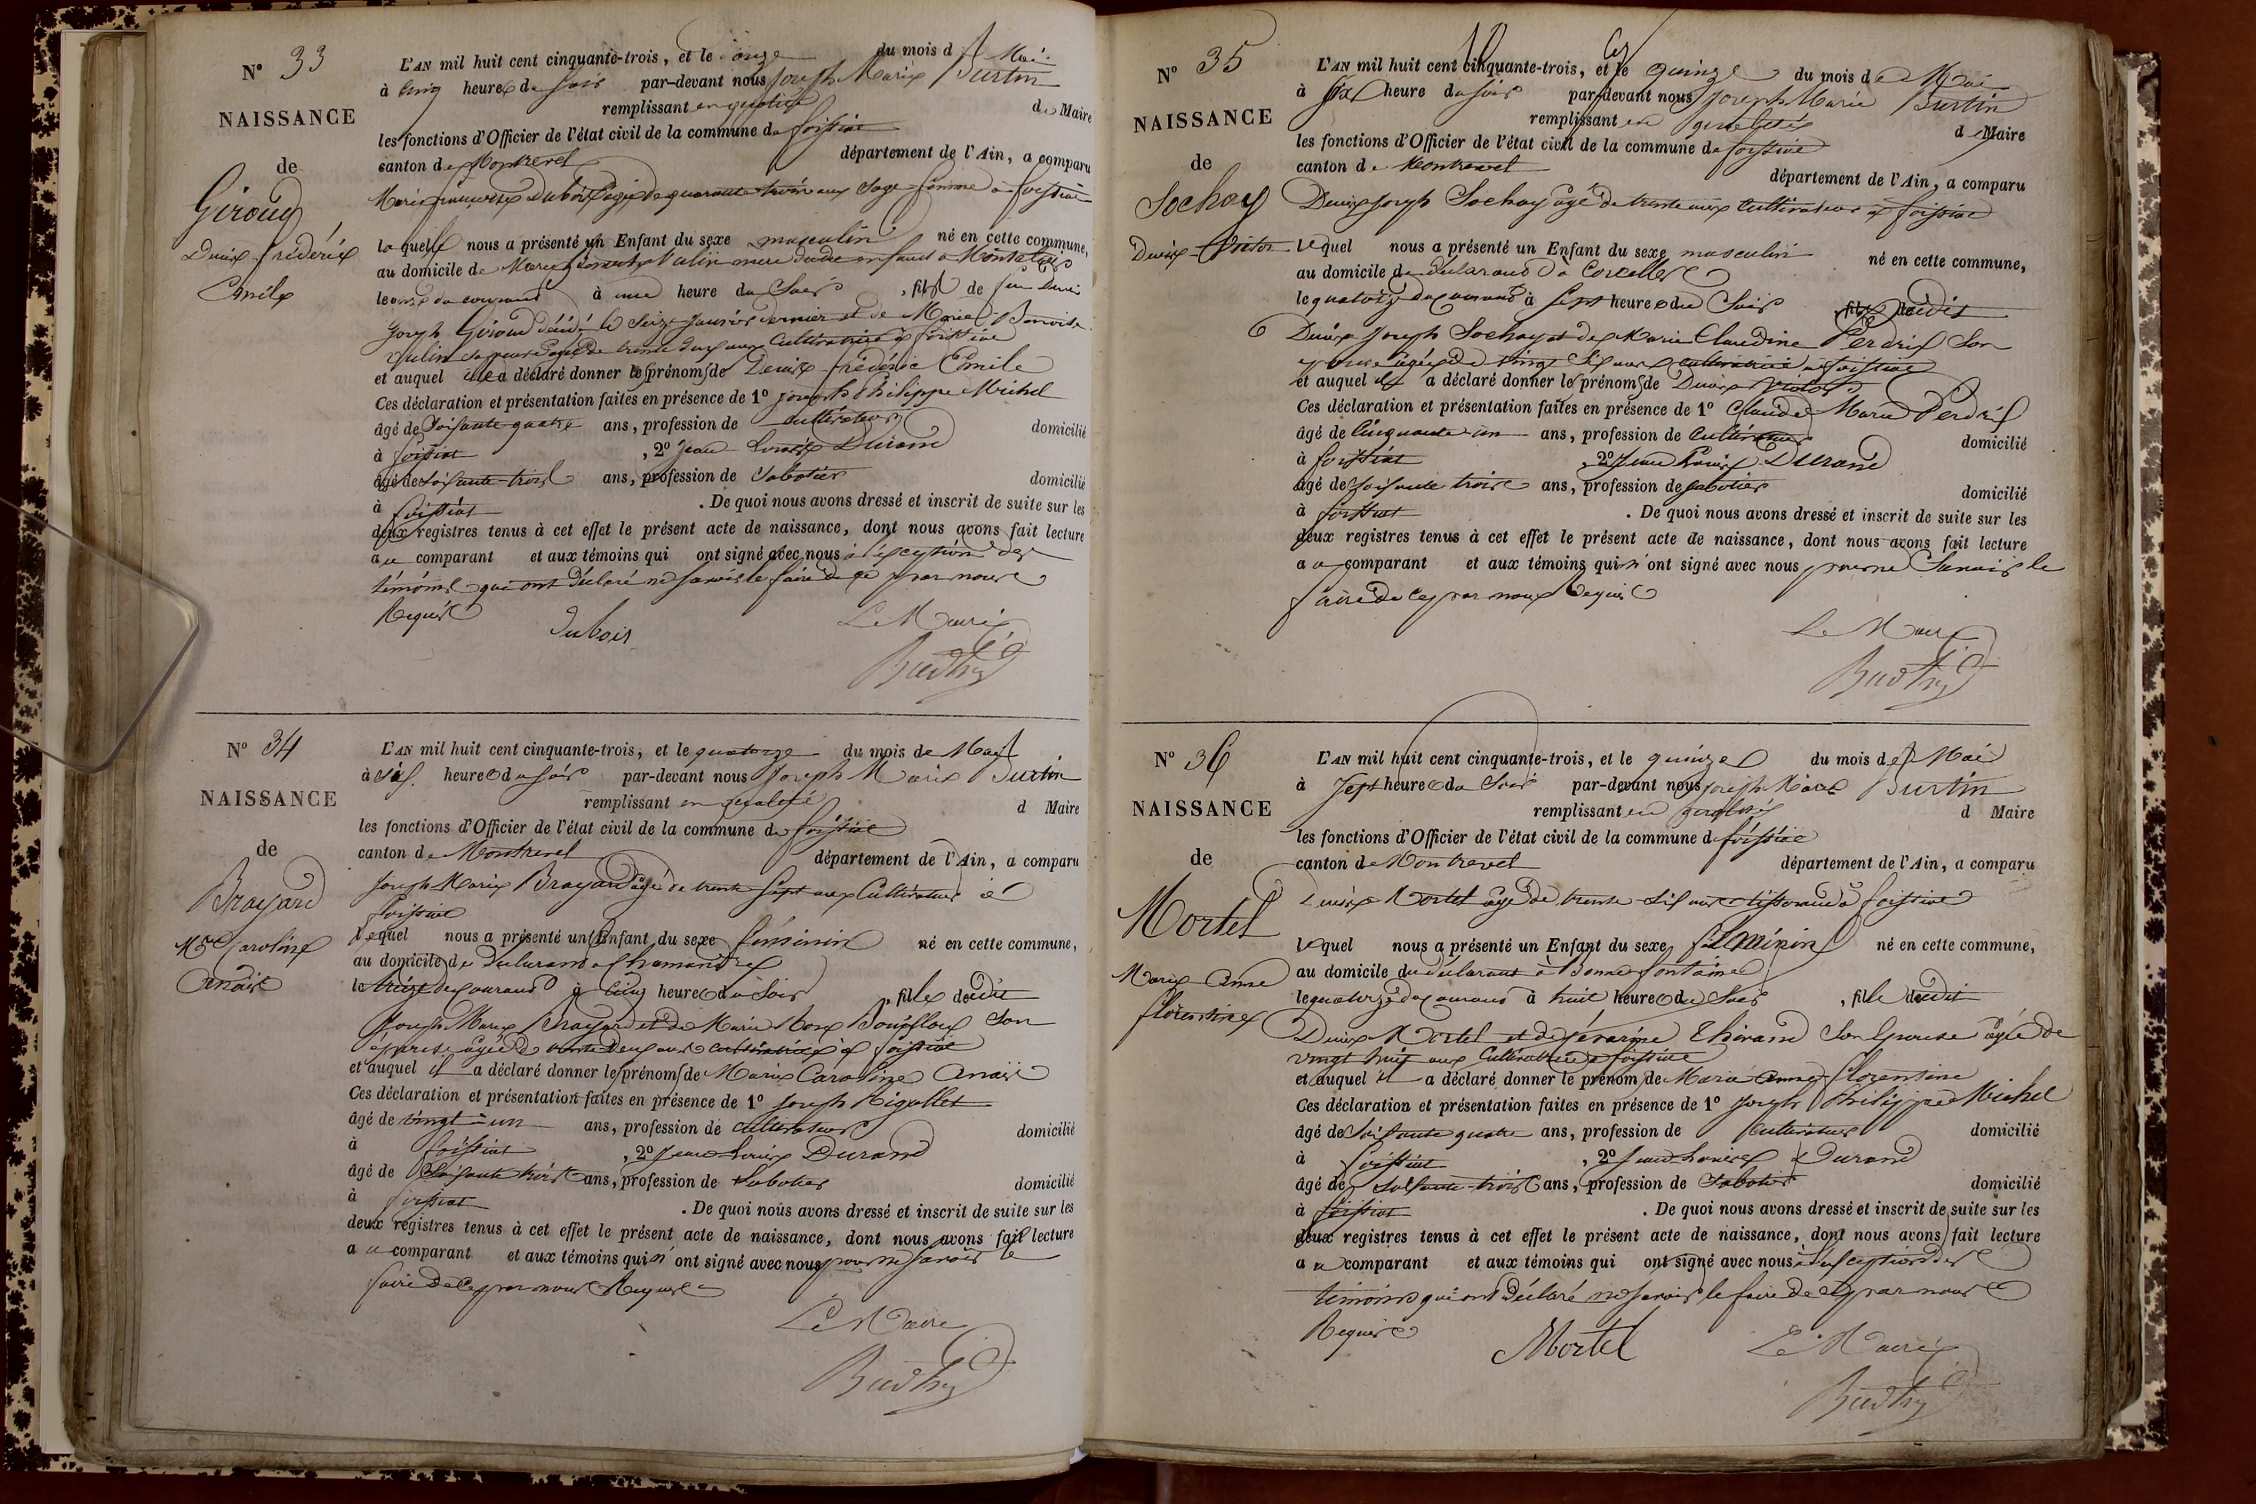 N° 33
NAISSANCE
de
Giroud
Denis frédéric
Emile
L'AN mil huit cent cinquante-trois, et le onze du mois de Mai
à cinq heures du soir par-devant nous Joseph Marie Burtin
remplissant en qualité de Maire
les fonctions d'Officier de l'état civil de la commune de foissiat
canton de Montrevel département de l'Ain, a comparu
Marie françoise Dubois âgée de quarante trois ans Sage femme à foissiat
laquelle nous a présenté un Enfant du sexe masculin né en cette commune,
au domicile de Marie Vulin mere dudit enfant à
le onze du courant à une heure du Soir, fils de feu Denis
Joseph Giroud décédé le Seize Janvier dernier et de Marie Benoite
Vulin sa veuve âgée de trente deux ans Cultivatrice à foissiat
et auquel elle a déclaré donner les prénoms de Denis frédéric Emile
Ces déclaration et présentation faites en présence de 1° Joseph Philippe Michel
âgé de soixante quatre ans, profession de cultivateur domicilié
à foissiat, 2° Jean Louis Durand
âgé de soixante trois ans, profession de Sabotier domicilié
à foissiat. De quoi nous avons dressé et inscrit de suite sur les
deux registres tenus à cet effet le présent acte de naissance, dont nous avons fait lecture
au comparant et aux témoins qui ont signé avec nous à l'exception des
témoins qui ont déclaré ne savoir le faire de ce par nous
Requis
Dubois
Le Maire
Burtin
N° 34
NAISSANCE
de
Brayard
Mie Caroline
Anaïs
L'AN mil huit cent cinquante-trois, et le quatorze du mois de Mai
à six heures du soir par-devant nous Joseph Marie Burtin
remplissant en qualité d Maire
les fonctions d'Officier de l'état civil de la commune de foissiat
canton de Montrevel département de l'Ain, a comparu
Joseph Marie Brayard âgé de trente sept ans Cultivateur à
foissiat
lequel nous a présenté un Enfant du sexe féminin né en cette commune,
au domicile du déclarant à
le treize du courant à cinq heures du Soir, fille dudit
Joseph Marie Brayard et de Marie Rose Son
épouse âgée de trente deux ans cultivatrice à foissiat
et auquel il a déclaré donner les prénoms de Marie Caroline Anaïs
Ces déclaration et présentation faites en présence de 1° Joseph Rigollet
âgé de vingt-un ans, profession de cultivateur domicilié
à foissiat, 2° Jean Louis Durand
âgé de Soixante trois ans, profession de Sabotier domicilié
à foissiat. De quoi nous avons dressé et inscrit de suite sur les
deux registres tenus à cet effet le présent acte de naissance, dont nous avons fait lecture
au comparant et aux témoins qui n'ont signé avec nous pour ne savoir le
faire de ce par nous Requis
Le Maire
Burtin
N° 35
NAISSANCE
de
Sochay
Denis Victor
L'AN mil huit cent cinquante-trois, et le quinze du mois de Mai
à six heure du soir par-devant nous Joseph Marie Burtin
remplissant en qualité d Maire
les fonctions d'Officier de l'état civil de la commune de foissiat
canton de Montrevel département de l'Ain, a comparu
Denis Joseph Sochay âgé de trente ans Cultivateur à foissiat
lequel nous a présenté un Enfant du sexe masculin né en cette commune,
au domicile du déclarant à Corcelles
le quatorze du courant à sept heures du Soir, fils dudit
Denis Joseph Sochay et de Marie Claudine Perdrix Son
épouse âgée de vingt six ans cultivatrice à foissiat
et auquel il a déclaré donner les prénoms de Denis Victor
Ces déclaration et présentation faites en présence de 1° Claude Marie Perdrix
âgé de Cinquante un ans, profession de Cultivateur domicilié
à foissiat, 2° Jean Louis Durand
âgé de soixante trois ans, profession de sabotier domicilié
à foissiat. De quoi nous avons dressé et inscrit de suite sur les
deux registres tenus à cet effet le présent acte de naissance, dont nous avons fait lecture
au comparant et aux témoins qui n'ont signé avec nous pour ne Savoir le
faire de ce par nous Requis
Le Maire
Burtin
N° 36
NAISSANCE
de
Mortel
Marie Anne
florentine
L'AN mil huit cent cinquante-trois, et le quinze du mois de Mai
à Sept heures du Soir par-devant nous Joseph Marie Burtin
remplissant en qualité d Maire
les fonctions d'Officier de l'état civil de la commune de foissiat
canton de Montrevel département de l'Ain, a comparu
Denis Mortel âgé de trente six ans tisserand à foissiat
lequel nous a présenté un Enfant du sexe féminin né en cette commune,
au domicile du déclarant à Bonne fontaine
le quatorze du courant à huit heures du Soir, fille dudit
Denis Mortel et de Sévérine Thévrand Son Epouse âgée de
vingt huit ans Cultivatrice à foissiat
et auquel il a déclaré donner le prénom de Marie Anne florentine
Ces déclaration et présentation faites en présence de 1° Joseph Philippe Michel
âgé de Soixante quatre ans, profession de Cultivateur domicilié
à foissiat, 2° Jean Louis Durand
âgé de Soixante trois ans, profession de Sabotier domicilié
à foissiat. De quoi nous avons dressé et inscrit de suite sur les
deux registres tenus à cet effet le présent acte de naissance, dont nous avons fait lecture
au comparant et aux témoins qui ont signé avec nous à l'exception des
témoins qui ont Déclaré ne savoir le faire de ce par nous
Requis
Mortel
Le Maire
Burtin